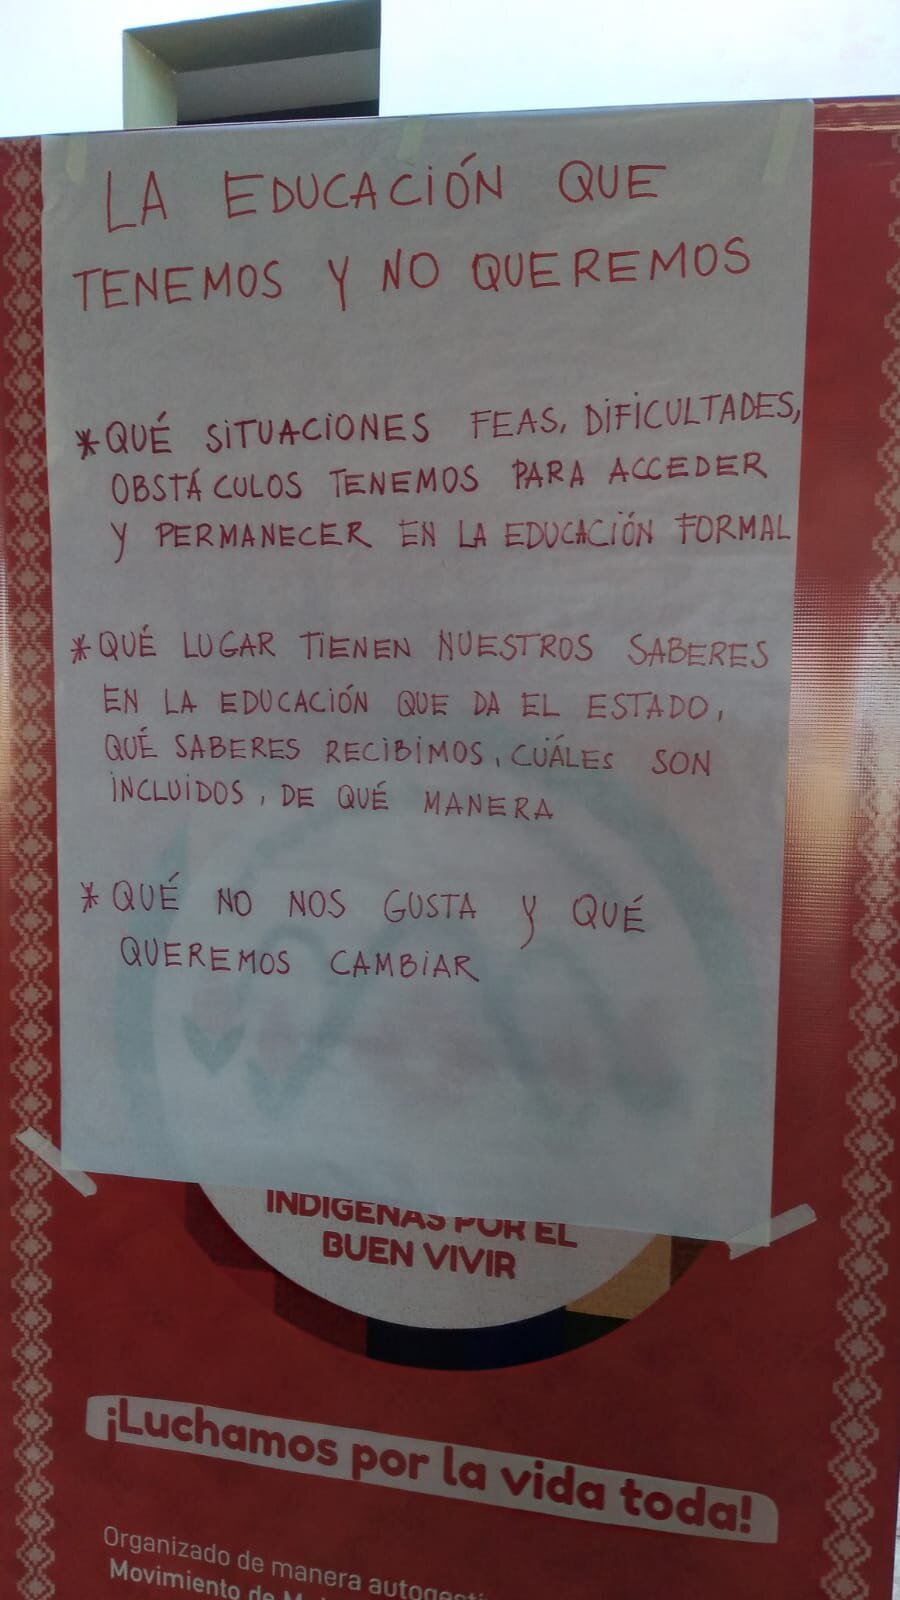 LA EDUCACIÓN QUE
TENEMOS Y NO QUEREMOS
* QUÉ SITUACIONES FEAS, DIFICULTADES,
OBSTÁCULOS TENEMOS PARA ACCEDER
Y PERMANECER EN LA EDUCACIÓN FORMAL
* QUÉ LUGAR TIENEN NUESTROS SABERES
EN LA EDUCACIÓN QUE DA EL ESTADO,
QUÉ SABERES RECIBIMOS, CUÁLES SON
INCLUIDOS, DE QUÉ MANERA
* QUÉ NO NOS GUSTA Y QUÉ
QUEREMOS CAMBIAR
INDÍGENAS POR EL
BUEN VIVIR
¡Luchamos por la vida toda!
Organizado de manera
Movimiento de